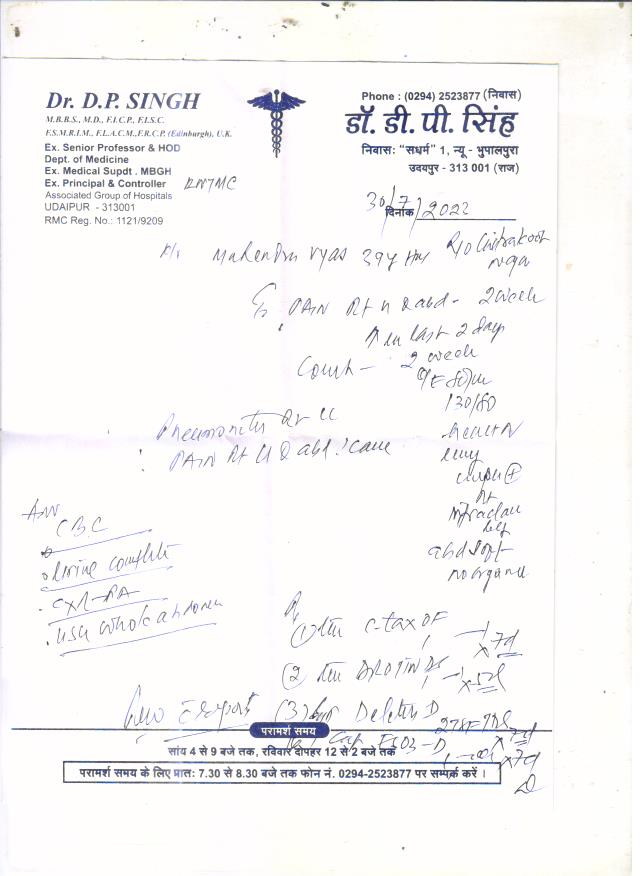 Dr. D.P. SINGH
M.B.B.S., M.D., F.I.C.P., F.I.S.C.
F.S.M.R.I.M., F.L.A.C.M., F.R.C.P. (Edinburgh), U.K.
Ex. Senior Professor & HOD
Dept. of Medicine
Ex. Medical Supdt . MBGH
Ex. Principal & Controller RNTMC
Associated Group of Hospitals
UDAIPUR - 313001
RMC Reg. No.: 1121/9209
Phone : (0294) 2523877 (निवास)
डॉ. डी. पी. सिंह
निवास: "सधर्म" 1, न्यू - भुपालपुरा
उदयपुर - 313 001 (राज)
दिनांक 30/7/2022
Mahendra Vyas 39y R/o Chitrakoot
Naga
PAIN Rt U Q abd - 2 week
↑ in last 2 day
Cough - 2 week
O/E 80/m
130/80
Heart N
Pneumonitis Rt U
PAIN Rt U Q abd ? cause
Rt
Infraclav
abd soft
no organ
Adv
CBC
Urine complete
CXR-PA
USG whole abdomen
Rx
(1) C-tax OF 1-1 x 7d
(2) DROTIN DS 1-1 x 5d
(3) Deletus D x 7d
Cap ESO3-D x 7d
Review report
परामर्श समय
सांय 4 से 9 बजे तक, रविवार दोपहर 12 से 2 बजे तक
परामर्श समय के लिए प्रात: 7.30 से 8.30 बजे तक फोन नं. 0294-2523877 पर सम्पर्क करें ।